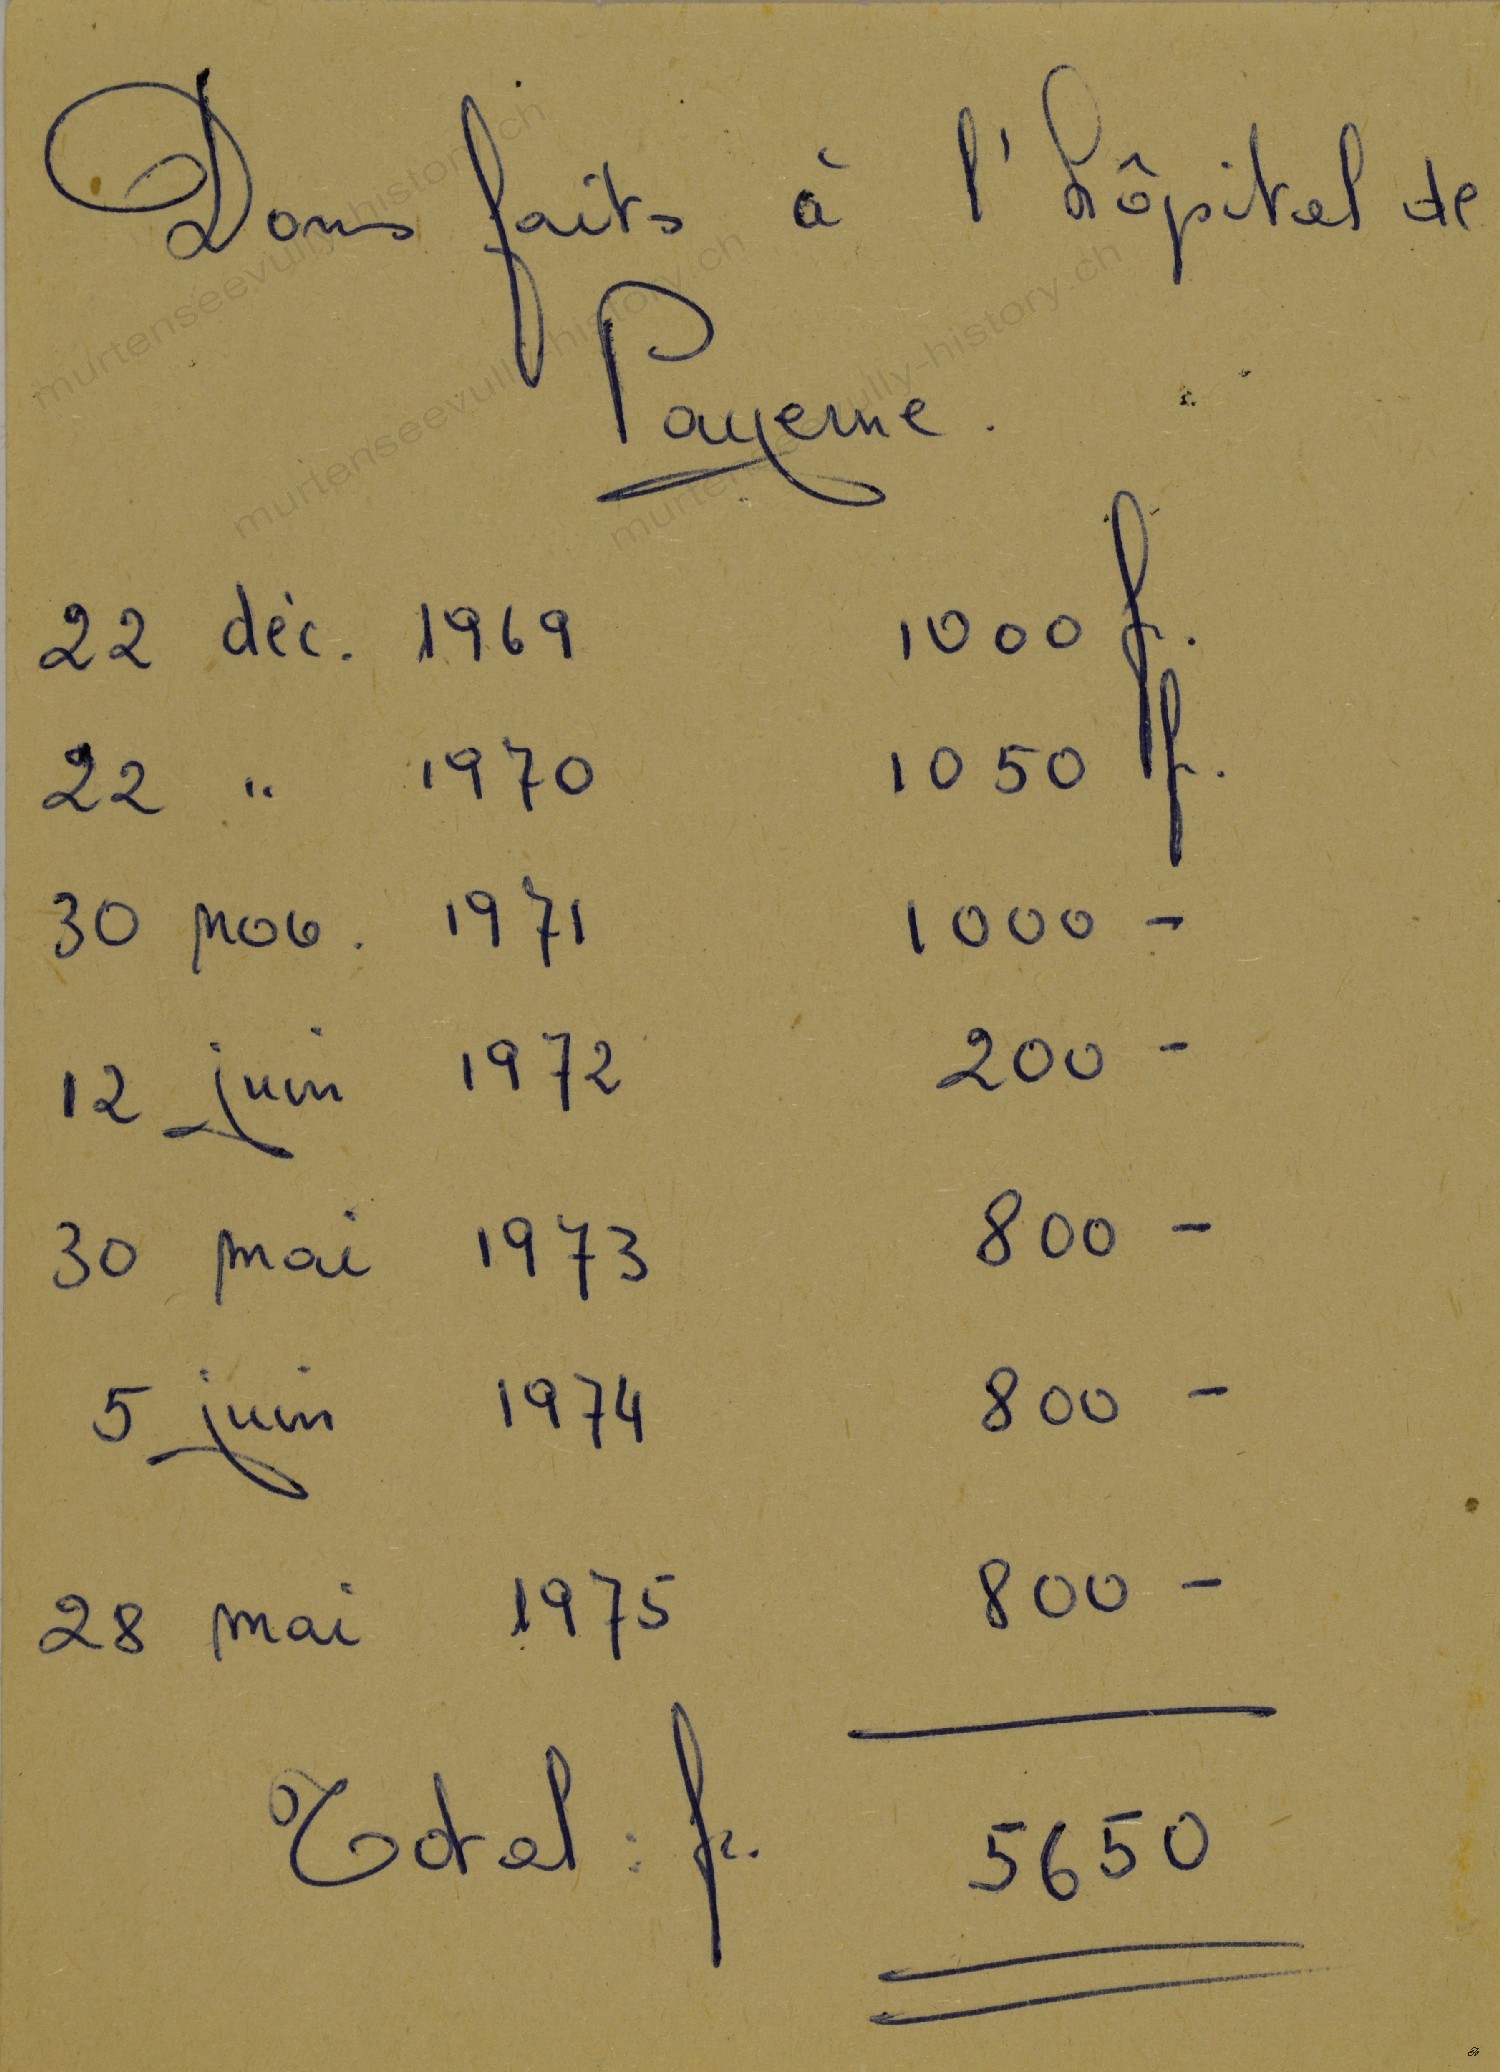 Dons faits à l'hôpital de
Payerne.
22 déc. 1969 1000 fr.
22 " 1970 1050 fr.
30 nov. 1971 1000 -
12 juin 1972 200 -
30 mai 1973 800 -
5 juin 1974 800 -
28 mai 1975 800 -
Total : fr. 5650
murtenseevully-history.ch
murtenseevully-history.ch
murtenseevully-history.ch